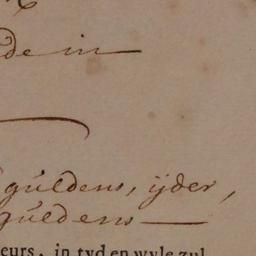 de in
gúldens, ijder,
gúldens
eurs, in tyd en wyle zul